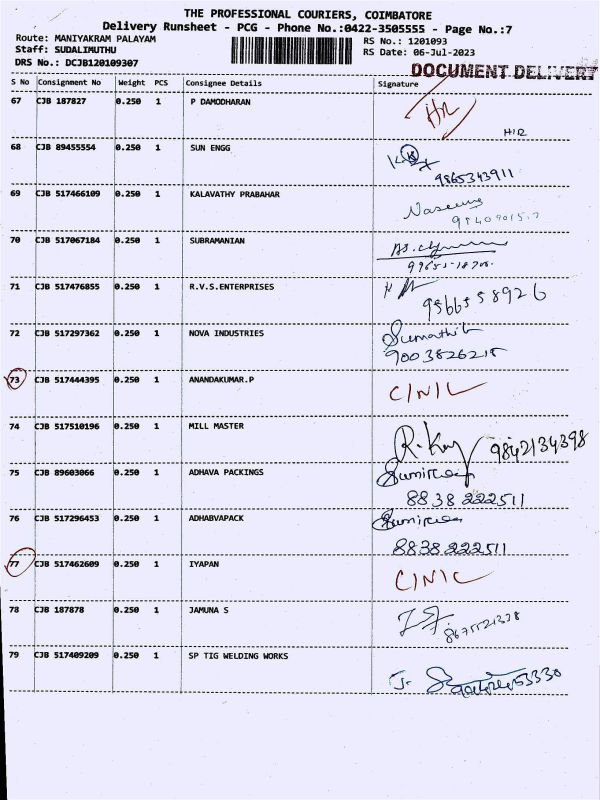 THE PROFESSIONAL COURIERS, COIMBATORE
Delivery Runsheet - PCG - Phone No.:0422-3505555 - Page No.:7
Route: MANIYAKRAM PALAYAM
Staff: SUDALIMUTHU
DRS No.: DCJB120109307
RS No.: 1201093
RS Date: 06-Jul-2023
DOCUMENT DELIVERY
S No Consignment No Weight PCS Consignee Details Signature
67 CJB 187827 0.250 1 P DAMODHARAN
HIR
68 CJB 89455554 0.250 1 SUN ENGG
9865343911
69 CJB 517466109 0.250 1 KALAVATHY PRABAHAR
70 CJB 517067184 0.250 1 SUBRAMANIAN
71 CJB 517476855 0.250 1 R.V.S.ENTERPRISES
9566558926
72 CJB 517297362 0.250 1 NOVA INDUSTRIES
9003826215
73 CJB 517444395 0.250 1 ANANDAKUMAR.P C/N/C
74 CJB 517510196 0.250 1 MILL MASTER
9842134398
75 CJB 89603066 0.250 1 ADHAVA PACKINGS
8838222511
76 CJB 517296453 0.250 1 ADHABVAPACK
8838222511
77 CJB 517462609 0.250 1 IYAPAN C/N/C
78 CJB 187878 0.250 1 JAMUNA S
79 CJB 517409209 0.250 1 SP TIG WELDING WORKS